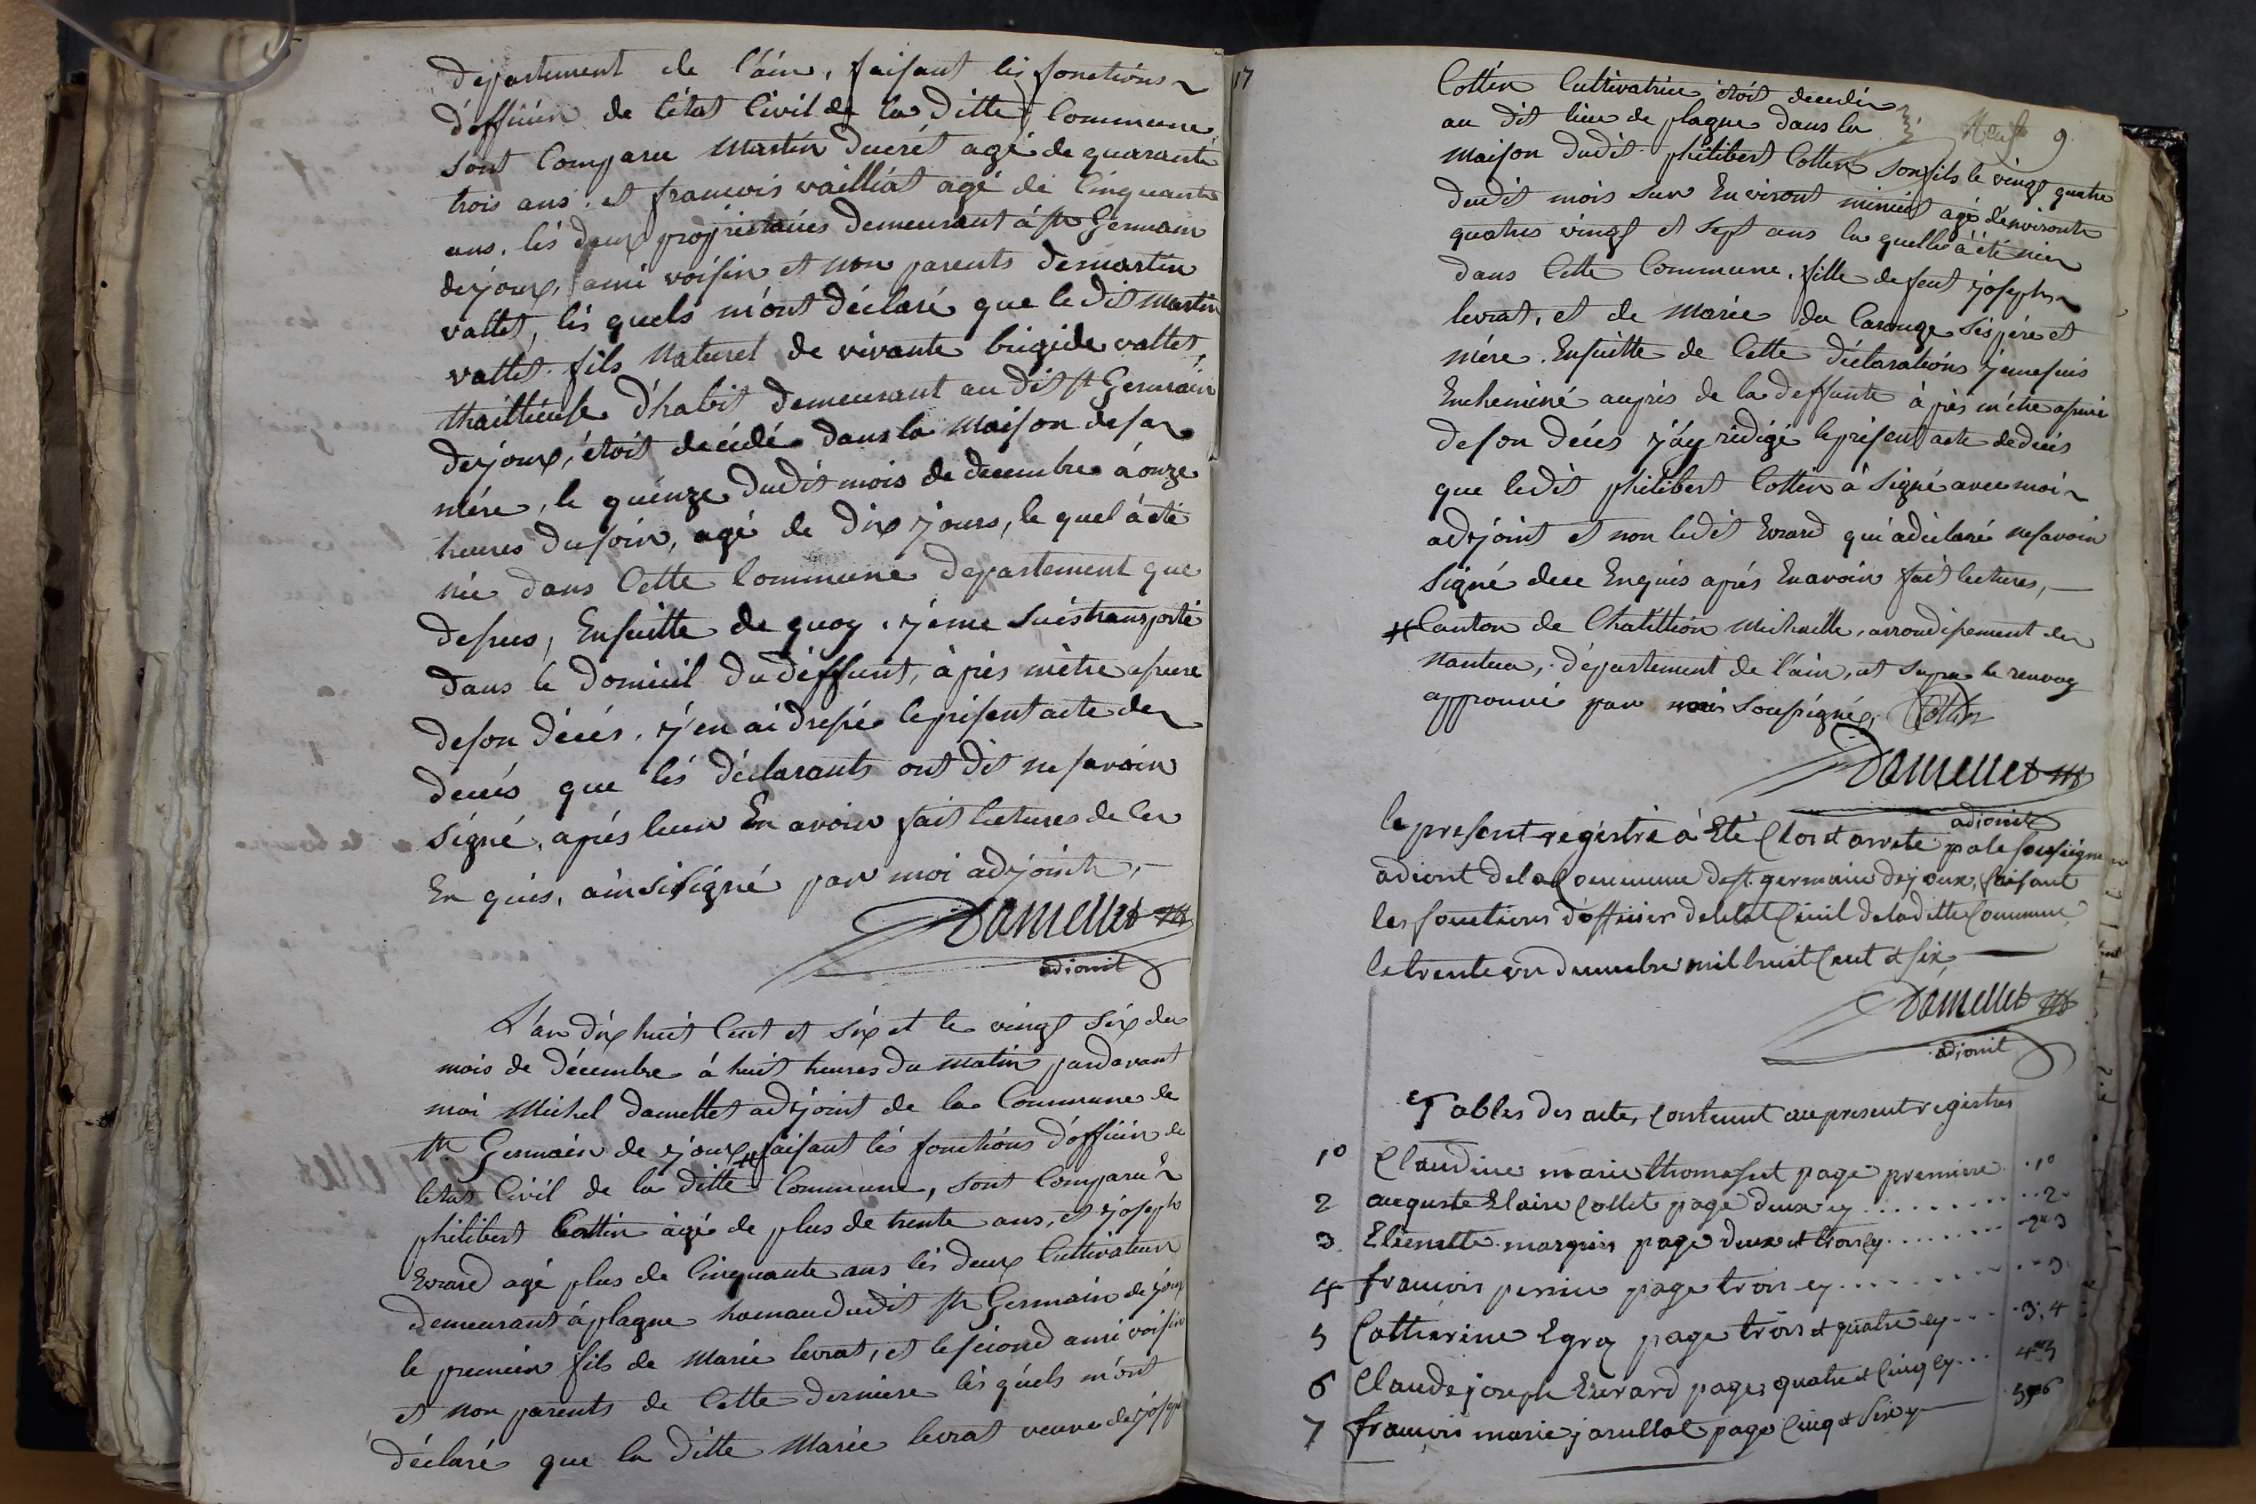 département de l'ain, faisant lés fonctions
d'officier de létat Civil de la ditte Commune
sont Comparu Martin ducrét agé de quarante
trois ans, et francois vailliat agé de Cinquante
ans, lés deux propriétaires demeurant à st Germain
dejoux, ami voisin et non parents demartin
vallet, lés quels m'ont déclaré que le dit martin
vallet fils Naturel de vivante brigide vallet,
thaillieuse d'habit demeurant au dit st Germain
dejoux, étoit decédé dans la Maison de sa
mére, le quinze dudit mois de decembre à onze
heures dusoir, agé de dix jours, le quel à été
née dans Cette Commune departement que
desus, Ensuitte de quoy, jéme suis transporté
dans le domicil du déffunt, à prés métre asuré
deson décés, j'en ai dressé leprésent acte de
decés que lés déclarants ont dit nesavoir
signé, aprés leur En avoir fait lectures de ce
En quis, ainsi signé par moi adjoint,
Damellet
adjoint
L'an dix huit Cent et six et le vingt six du
mois de décembre à huit heures du matin pardavant
moi Michel damellet adjoint de la Commune de
st Germain de joux # faisant lés fonctions d'officier de
létat Civil de la ditte Commune, sont Comparu
philibert Cottin agé de plus de trente ans, et joseph
Evrard agé plus de Cinquante ans lés deux Cultivateur
demeurant à plagne hamaududit st Germain de joux
le premier fils de Marie levrat, et le second ami voisin
et non parents de Cette derniere lés quels m'ont
déclaré que la ditte Marie levrat veuve de joseph
17
Cottin Cultivatrice étoit decedée
au dit lieu de plagne dans la
9.
Maison dudit philibert Cottin son fils le vingt quatre
dudit mois sur Environt minuit agé d'environt
quatres vingt et sept ans la quelle à été née
dans Cette Commune, fille de feut joseph
levrat, et de Marie du Carouge sés pére et
mére. Ensuitte de Cette déclarations jemesuis
Encheminé auprés de la deffunte à prés m'étre asuré
deson décés j'ay rédigé leprésent acte dedécés
que ledit philibert Cottin à Signé avec moi
adjoint et non ledit Evrard qui à déclaré nesavoir
Signé dece Enquis aprés En avoir fait lectures,
# Canton de Chatillion Michaille, arrondissement de
Nantua, département de l'ain, et supra le renvoy
approuvé par nous soussigné, Cottin
Damellet
adjoint
le present régistre à Eté Clos et arreté par le soussigné
adioint dela Commune dest germain dejoux, faisant
les fonctions d'officier deletat Civil deladitte Commune
le trente un decembre mil huit Cent et six,
Damellet
adjoint
Tables des actes Contenut au present registres
1º Claudine marie thomasset page premiere 1º
2 auguste Claire Collet page deux cy 2
3 Etiennette marquis page deux et trois cy 2 et 3
4 francois perrin page trois cy 3
5 Catherine Egrq page trois et quatre cy 3, 4
6 Claude joseph Euvrard pages quatre et Cinq cy 4 et 5
7 francois marie jarullat page Cinq et Six cy 5 et 6